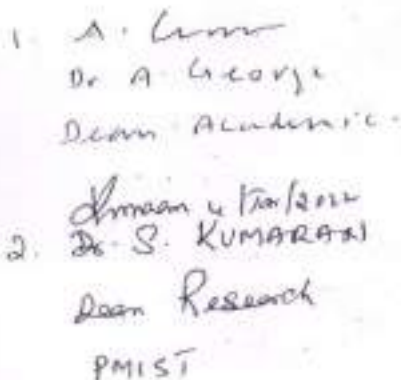 1. A.
Dr A George
Dean Academic.
2. Dr. S. KUMARAN
Dean Research
PMIST